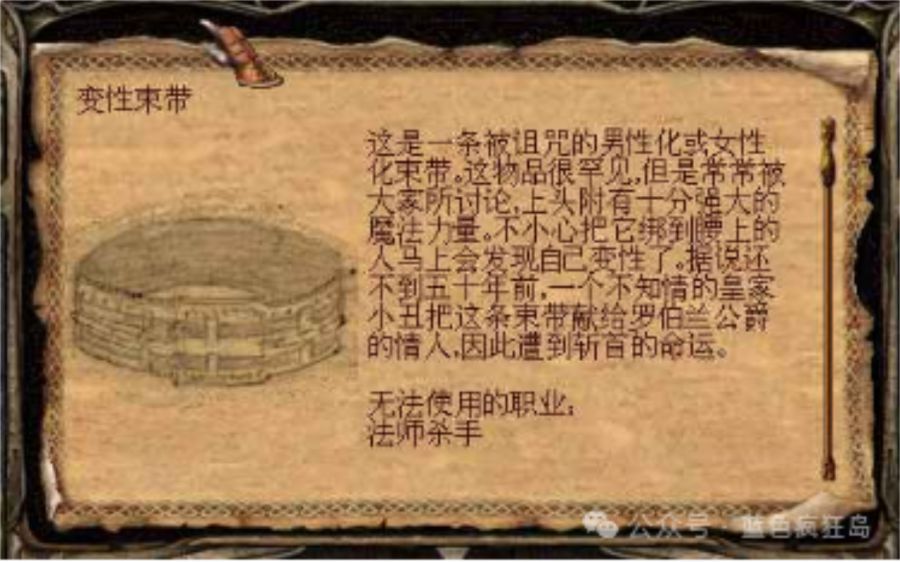 变性束带
这是一条被诅咒的男性化或女性
化束带。这物品很罕见,但是常常被
大家所讨论,上头附有十分强大的
魔法力量。不小心把它绑到腰上的
人马上会发现自己变性了。据说还
不到五十年前,一个不知情的皇家
小丑把这条束带献给罗伯兰公爵
的情人,因此遭到斩首的命运。
无法使用的职业:
法师杀手
公众号·蓝色疯狂岛